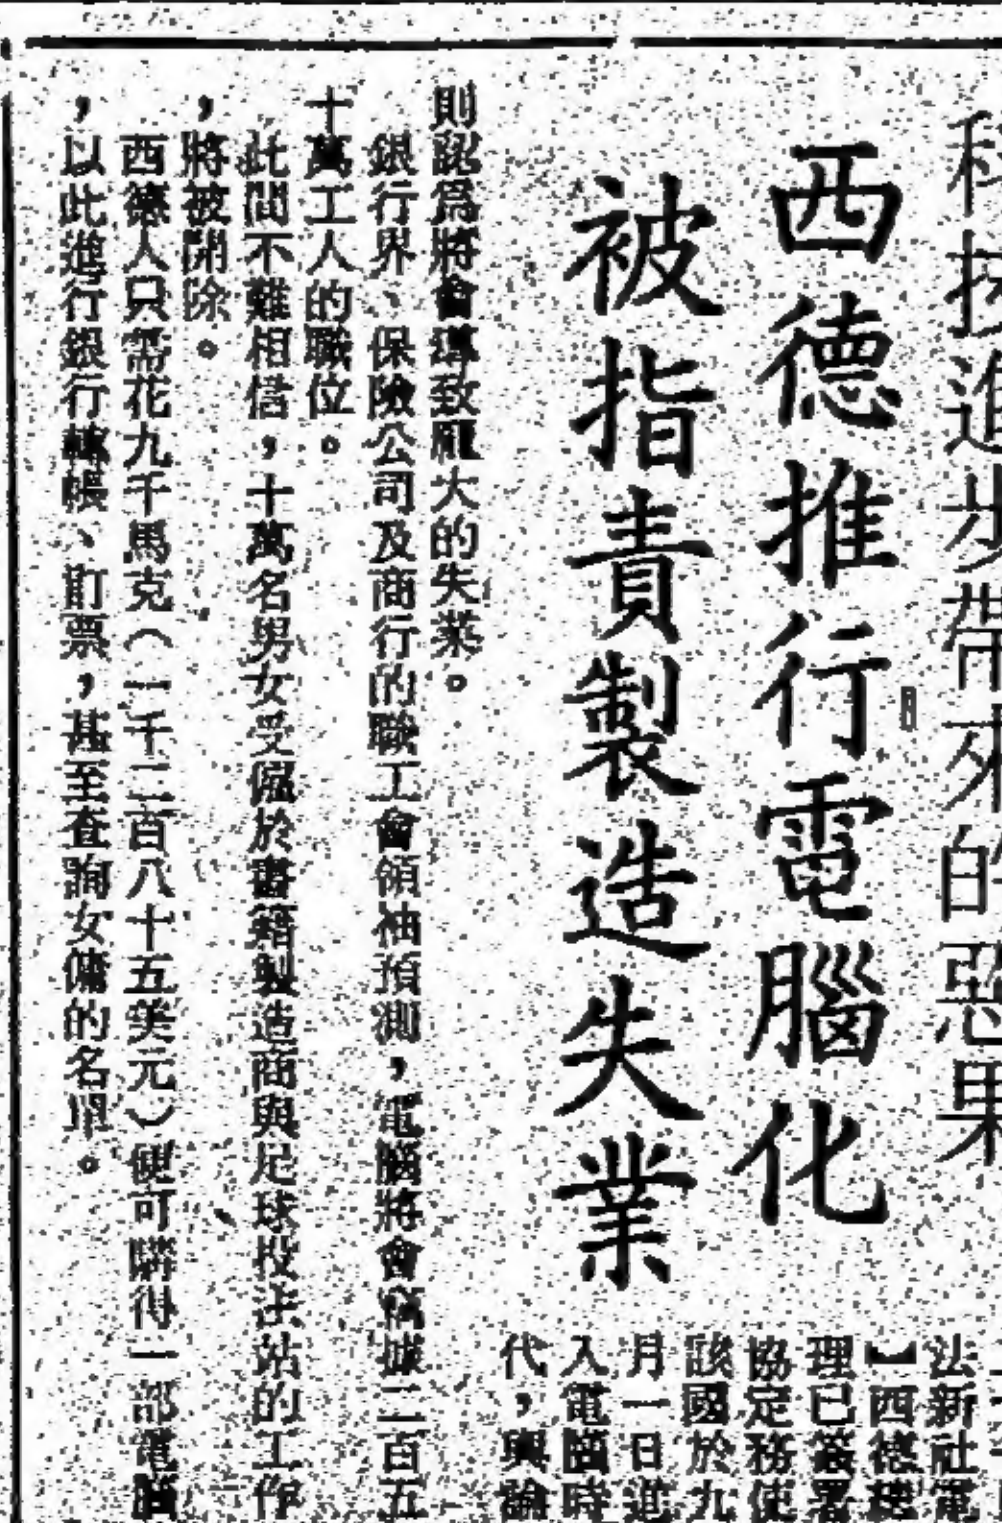 科技進步帶來的惡果
西德推行電腦化
被指責製造失業
法新社電
】西德總
理已簽署
協定務使
該國於九
月一日進
入電腦時
代，輿論
則認爲將會導致龐大的失業。
銀行界、保險公司及商行的職工會領袖預測，電腦將會竊據二百五
十萬工人的職位。
此間不難相信，十萬名男女受僱於書籍製造商與足球投注站的工作
，將被開除。
西德人只需花九千馬克（一千二百八十五美元）便可購得一部電腦
，以此進行銀行轉帳、訂票，甚至查詢女傭的名單。